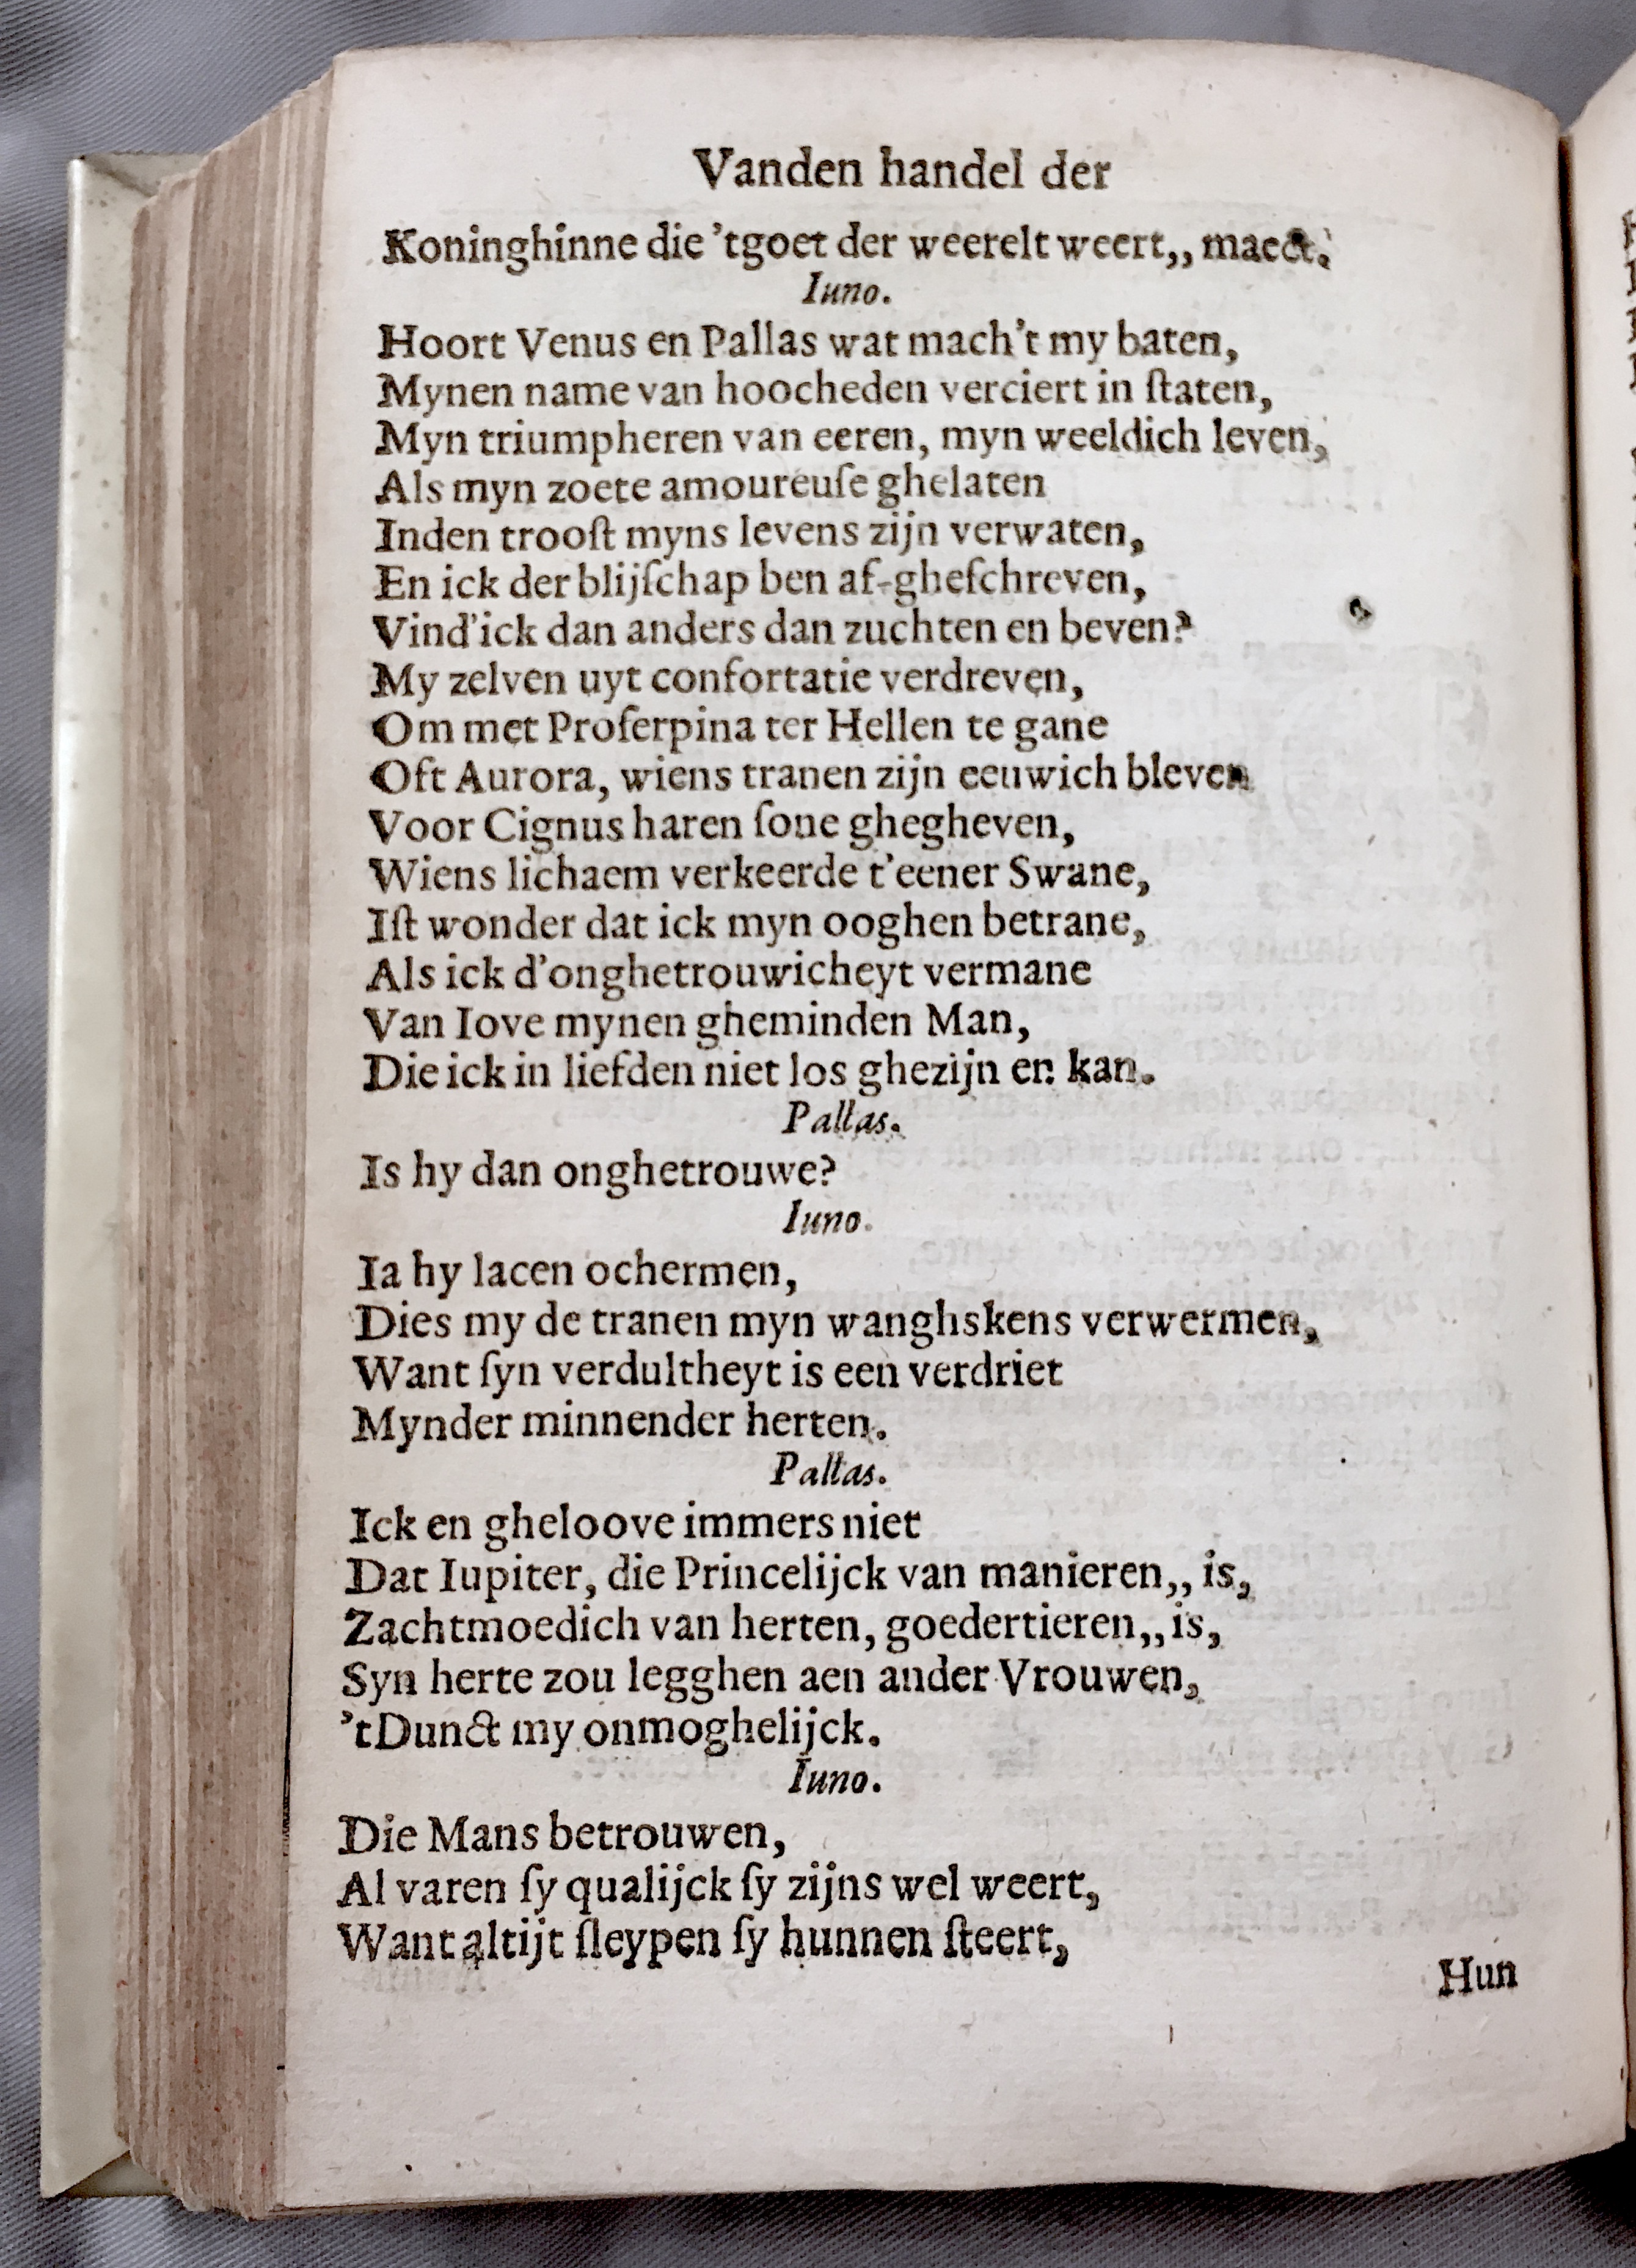 Vanden handel der
Koninghinne die ’tgoet der weerelt weert,, maect.
Iuno.
Hoort Venus en Pallas wat mach’t my baten,
Mynen name van hoocheden verciert in ſtaten,
Myn triumpheren van eeren, myn weeldich leven,
Als myn zoete amoureuſe ghelaten
Inden trooſt myns levens zijn verwaten,
En ick der blijſchap ben af-gheſchreven,
Vind’ick dan anders dan zuchten en beven?
My zelven uyt confortatie verdreven,
Om met Proſerpina ter Hellen te gane
Oft Aurora, wiens tranen zijn eeuwich bleven
Voor Cignus haren ſone ghegheven,
Wiens lichaem verkeerde t’eener Swane,
Iſt wonder dat ick myn ooghen betrane,
Als ick d’onghetrouwicheyt vermane
Van Iove mynen gheminden Man,
Die ick in liefden niet los ghezijn en kan.
Pallas.
Is hy dan onghetrouwe?
Iuno.
Ia hy lacen ochermen,
Dies my de tranen myn wanghskens verwermen,
Want ſyn verdultheyt is een verdriet
Mynder minnender herten.
Pallas.
Ick en gheloove immers niet
Dat Iupiter, die Princelijck van manieren,, is,
Zachtmoedich van herten, goedertieren,, is,
Syn herte zou legghen aen ander Vrouwen,
’tDunct my onmoghelijck.
Iuno.
Die Mans betrouwen,
Al varen ſy qualijck ſy zijns wel weert,
Want altijt ſleypen ſy hunnen ſteert,
Hun